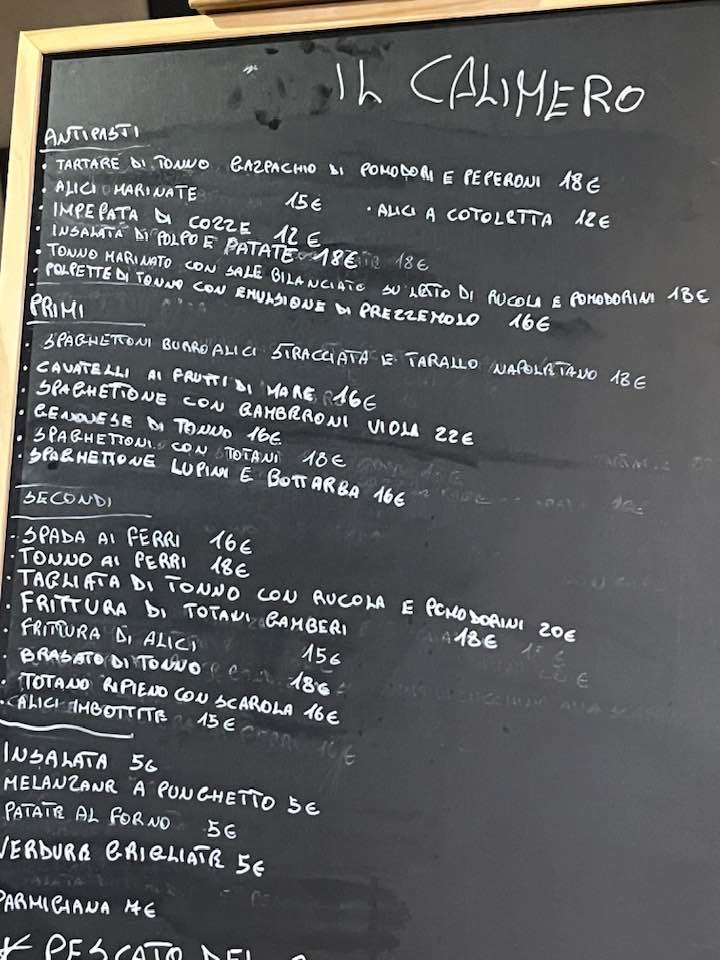 IL CALIMERO
ANTIPASTI
• TARTARE DI TONNO GAZPACHIO DI POMODORI E PEPERONI 18€
• ALICI MARINATE 15€ • ALICI A COTOLETTA 12€
• IMPEPATA DI COZZE 12€
• INSALATA DI POLPO E PATATE 18€ 18€
• TONNO MARINATO CON SALE BILANCIATO SU LETTO DI RUCOLA E POMODORINI 18€
• POLPETTE DI TONNO CON EMULSIONE DI PREZZEMOLO 16€
PRIMI
• SPAGHETTONI BURRO ALICI STRACCIATA E TARALLO NAPOLETANO 18€
• CAVATELLI AI FRUTTI DI MARE 16€
• SPAGHETTONE CON GAMBERONI VIOLA 22€
• GENOVESE DI TONNO 16€
• SPAGHETTONI CON TOTANI 18€
• SPAGHETTONE LUPINI E BOTTARGA 16€
SECONDI
• SPADA AI FERRI 16€
• TONNO AI FERRI 18€
• TAGLIATA DI TONNO CON RUCOLA E POMODORINI 20€
• FRITTURA DI TOTANI GAMBERI 18€
• FRITTURA DI ALICI 15€
• BRASATO DI TONNO 18€
• TOTANO RIPIENO CON SCAROLA 16€
• ALICI IMBOTTITE 15€
INSALATA 5€
MELANZANE A FUNGHETTO 5€
PATATE AL FORNO 5€
VERDURE GRIGLIATE 5€
PARMIGIANA 7€
* PESCATO DEL